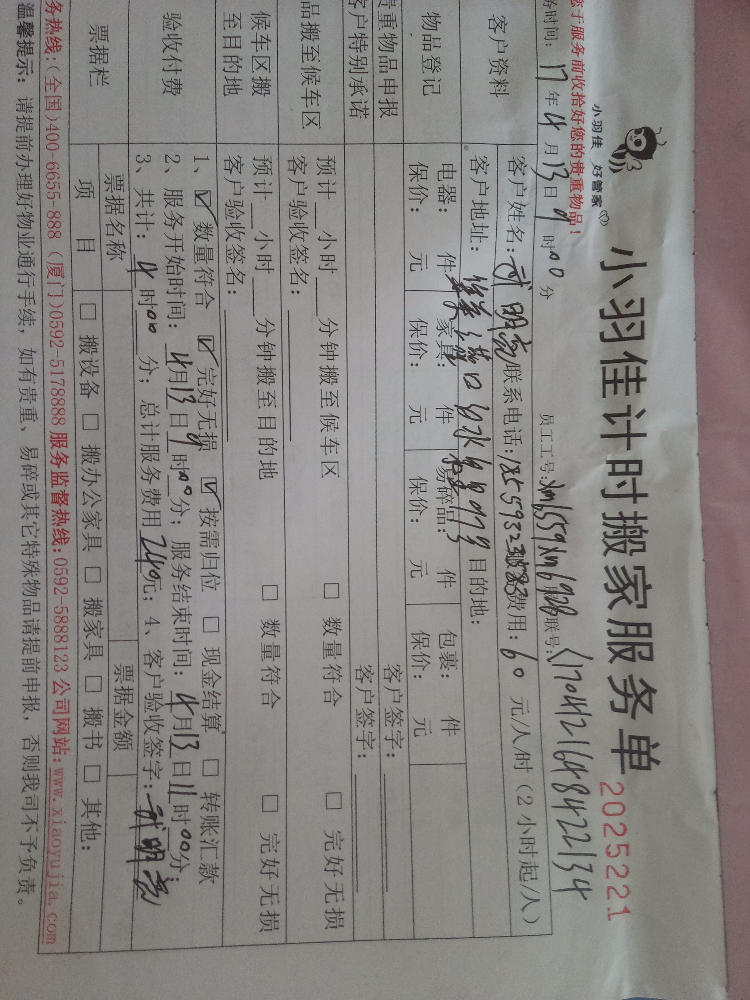 小羽佳 好管家
小羽佳计时搬家服务单
2025221
您于服务前收拾好您的贵重物品！
务时间：17年4月13日9时00分
员工工号：xm6559 xm6928
联号：
客户资料
客户姓名：武明亮
联系电话：
费用：60元/人/时（2小时起/人）
客户地址：
目的地：
物品登记
电器： 件 家具： 件 易碎品： 件 包裹： 件
保价： 元 保价： 元 保价： 元 保价： 元
贵重物品申报
客户签字：
客户特别承诺
客户签字：
品搬至候车区
预计 小时 分钟搬至候车区 □ 数量符合 □ 完好无损
客户验收签名：
候车区搬至目的地
预计 小时 分钟搬至目的地 □ 数量符合 □ 完好无损
客户验收签名：
验收付费
1、☑ 数量符合 ☑ 完好无损 ☑ 按需归位 □ 现金结算 □ 转账汇款
2、服务开始时间：4月13日9时00分；服务结束时间：4月13日11时00分；
3、共计：4时00分；总计服务费用240元；4、客户验收签字：武明亮
票据栏
票据名称 票据金额
项 目 □ 搬设备 □ 搬办公家具 □ 搬家具 □ 搬书 □ 其他：
务热线：(全国)400-6655-888（厦门)0592-5178888 服务监督热线：0592-5888123 公司网站：www.xiaoyujia.com
温馨提示：请提前办理好物业通行手续，如有贵重、易碎或其它特殊物品请提前申报，否则我司不予负责。